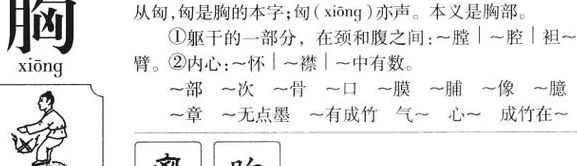 胸
xiōng
从匈,匈是胸的本字;匈(xiōng)亦声。本义是胸部。
①躯干的一部分，在颈和腹之间:～膛｜～腔｜袒～
臂。②内心:～怀｜～襟｜～中有数。
～部 ～次 ～骨 ～口 ～膜 ～脯 ～像 ～臆
～章 ～无点墨 ～有成竹 气～ 心～ 成竹在～